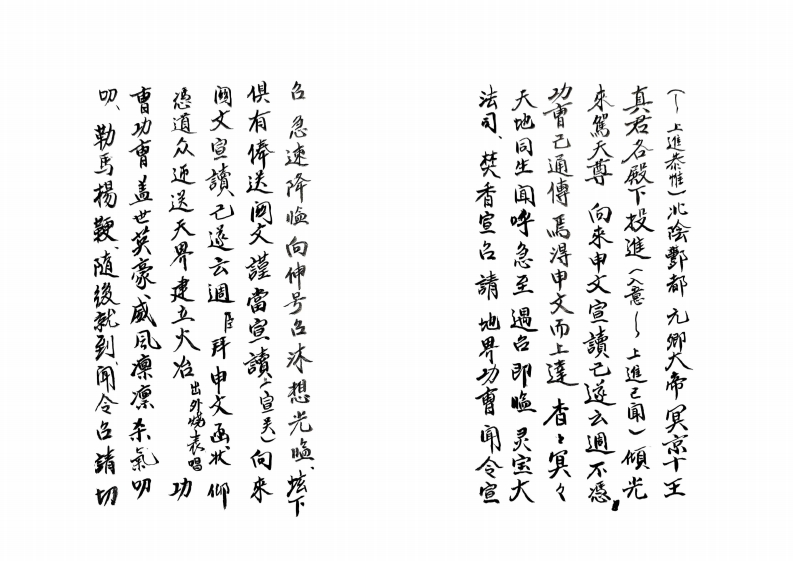 (〜上進恭惟)北陰酆都元卿大帝冥京十王
真君各殿下投進(入意〜上進已聞)傾光
來駕天尊 向來申文宣讀已遂云週不憑
功曹已通傳焉淂申文而上達 杳々冥々
天地同生聞呼急至遇召即臨 灵宝大
法司、焚香宣召請 地界功曹聞令宣
召 急速降臨向伸号召沐想光臨、坛下
俱有俸送関文謹當宣讀(宣关)向來
関文宣讀已遂云週 臣拜申文函状仰
憑道众迎送天界建立火冶 出外烧表唱 功
曹功曹盖世英豪威风凛凛杀氣叨
叨、勒馬揚鞭、随後就到、聞令召請切